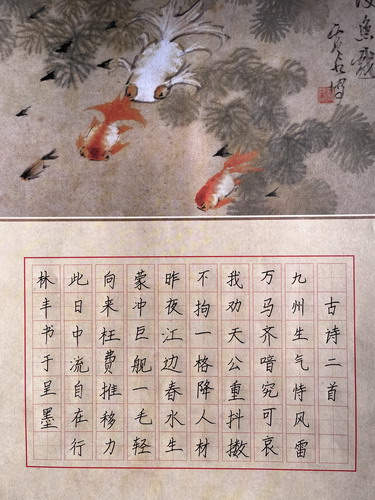 古诗二首
九州生气恃风雷
万马齐喑究可哀
我劝天公重抖擞
不拘一格降人材
昨夜江边春水生
蒙冲巨舰一毛轻
向来枉费推移力
此日中流自在行
林丰书于呈墨